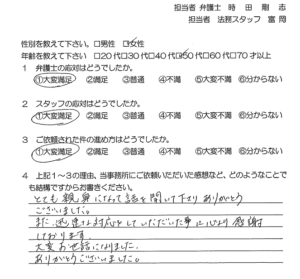 担当者 弁護士 時 田 剛 志
担当者 法務スタッフ 富 岡
性別を教えて下さい。□男性 ☑女性
年齢を教えて下さい □20代□30代□40代☑50代□60代□70才以上
1 弁護士の応対はどうでしたか。
①大変満足 ②満足 ③普通 ④不満 ⑤大変不満 ⑥分からない
2 スタッフの応対はどうでしたか。
①大変満足 ②満足 ③普通 ④不満 ⑤大変不満 ⑥分からない
3 ご依頼された件の進め方はどうでしたか。
①大変満足 ②満足 ③普通 ④不満 ⑤大変不満 ⑥分からない
4 上記1～3の理由、当事務所にご依頼いただいた感想など、どのようなことで
も結構ですからお書きください。
とても親身になって話を聞いて下さりありがとう
ございました。
また、迅速な対応をしていただいた事に心より感謝
しております。
大変お世話になりました。
ありがとうございました。